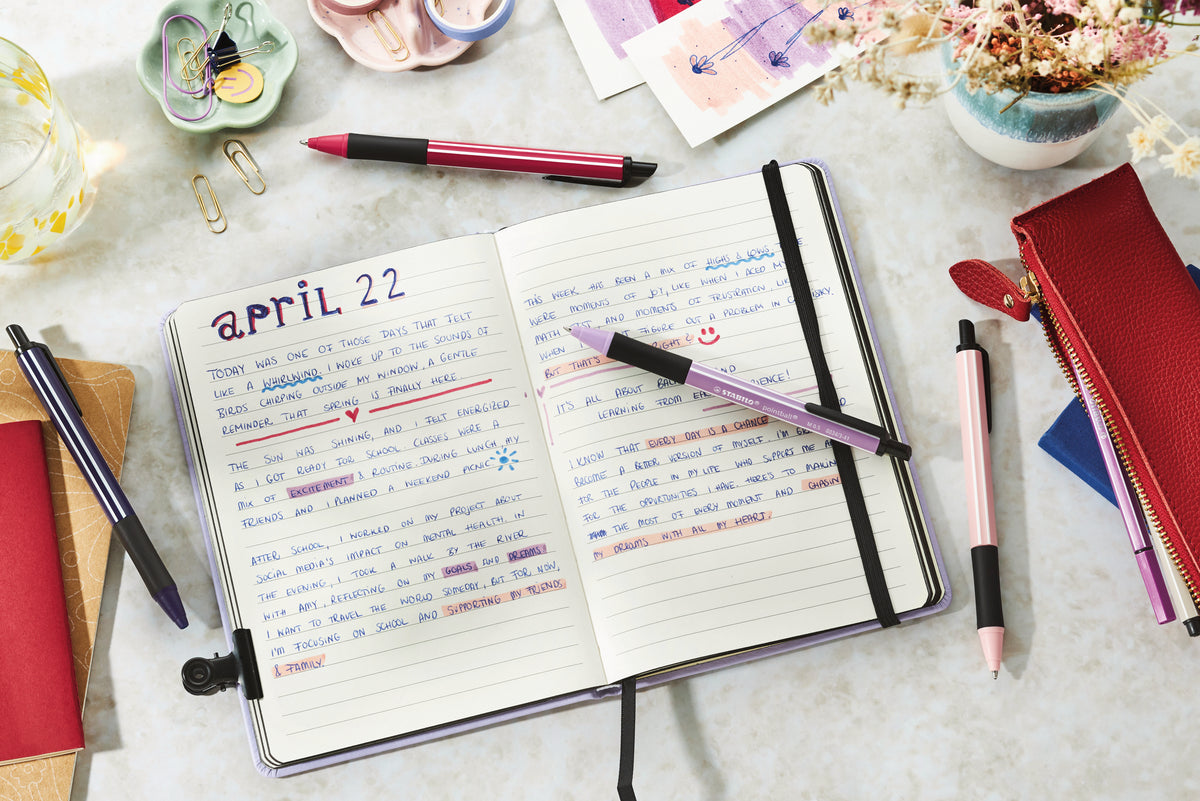 april 22
TODAY WAS ONE OF THOSE DAYS THAT FELT
LIKE A WHIRLWIND. I WOKE UP TO THE SOUNDS OF
BIRDS CHIRPING OUTSIDE MY WINDOW, A GENTLE
REMINDER THAT SPRING IS FINALLY HERE
THE SUN WAS SHINING, AND I FELT ENERGIZED
AS I GOT READY FOR SCHOOL. CLASSES WERE A
MIX OF EXCITEMENT & ROUTINE. DURING LUNCH, MY
FRIENDS AND I PLANNED A WEEKEND PICNIC.
AFTER SCHOOL, I WORKED ON MY PROJECT ABOUT
SOCIAL MEDIA'S IMPACT ON MENTAL HEALTH. IN
THE EVENING, I TOOK A WALK BY THE RIVER
WITH AMY, REFLECTING ON MY GOALS AND DREAMS
I WANT TO TRAVEL THE WORLD SOMEDAY, BUT FOR NOW,
I'M FOCUSING ON SCHOOL AND SUPPORTING MY FRIENDS
& FAMILY.
THIS WEEK HAS BEEN A MIX OF HIGHS & LOWS.
WERE MOMENTS OF JOY, LIKE WHEN I ACED
MATH AND MOMENTS OF FRUSTRATION,
WHEN FIGURE OUT A PROBLEM IN
BUT THAT'S RIGHT?
IT'S ALL ABOUT
LEARNING FROM
I KNOW THAT EVERY DAY IS A CHANCE
BECOME A BETTER VERSION OF MYSELF. I'M
FOR THE PEOPLE IN MY LIFE WHO SUPPORT ME
FOR THE OPPORTUNITIES I HAVE. HERE'S TO
THE MOST OF EVERY MOMENT AND
MY DREAMS WITH ALL MY HEART.
STABILO pointball